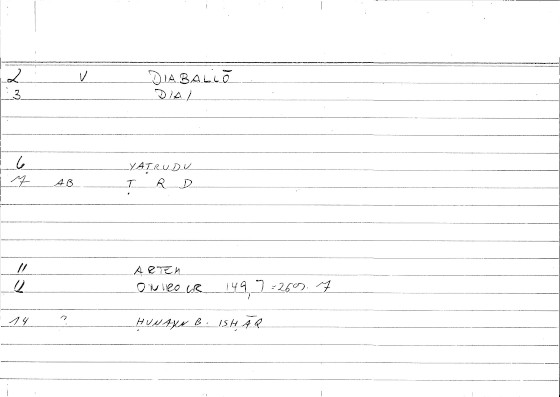 2 V DIABALLŌ
3 DIA/
6 YAṬRUDU
7 AB Ṭ R D
11 ARTEM
12 ONIROCR 149, 7 = 260, 7
14 ? ḤUNAYN B. ISḤĀQ